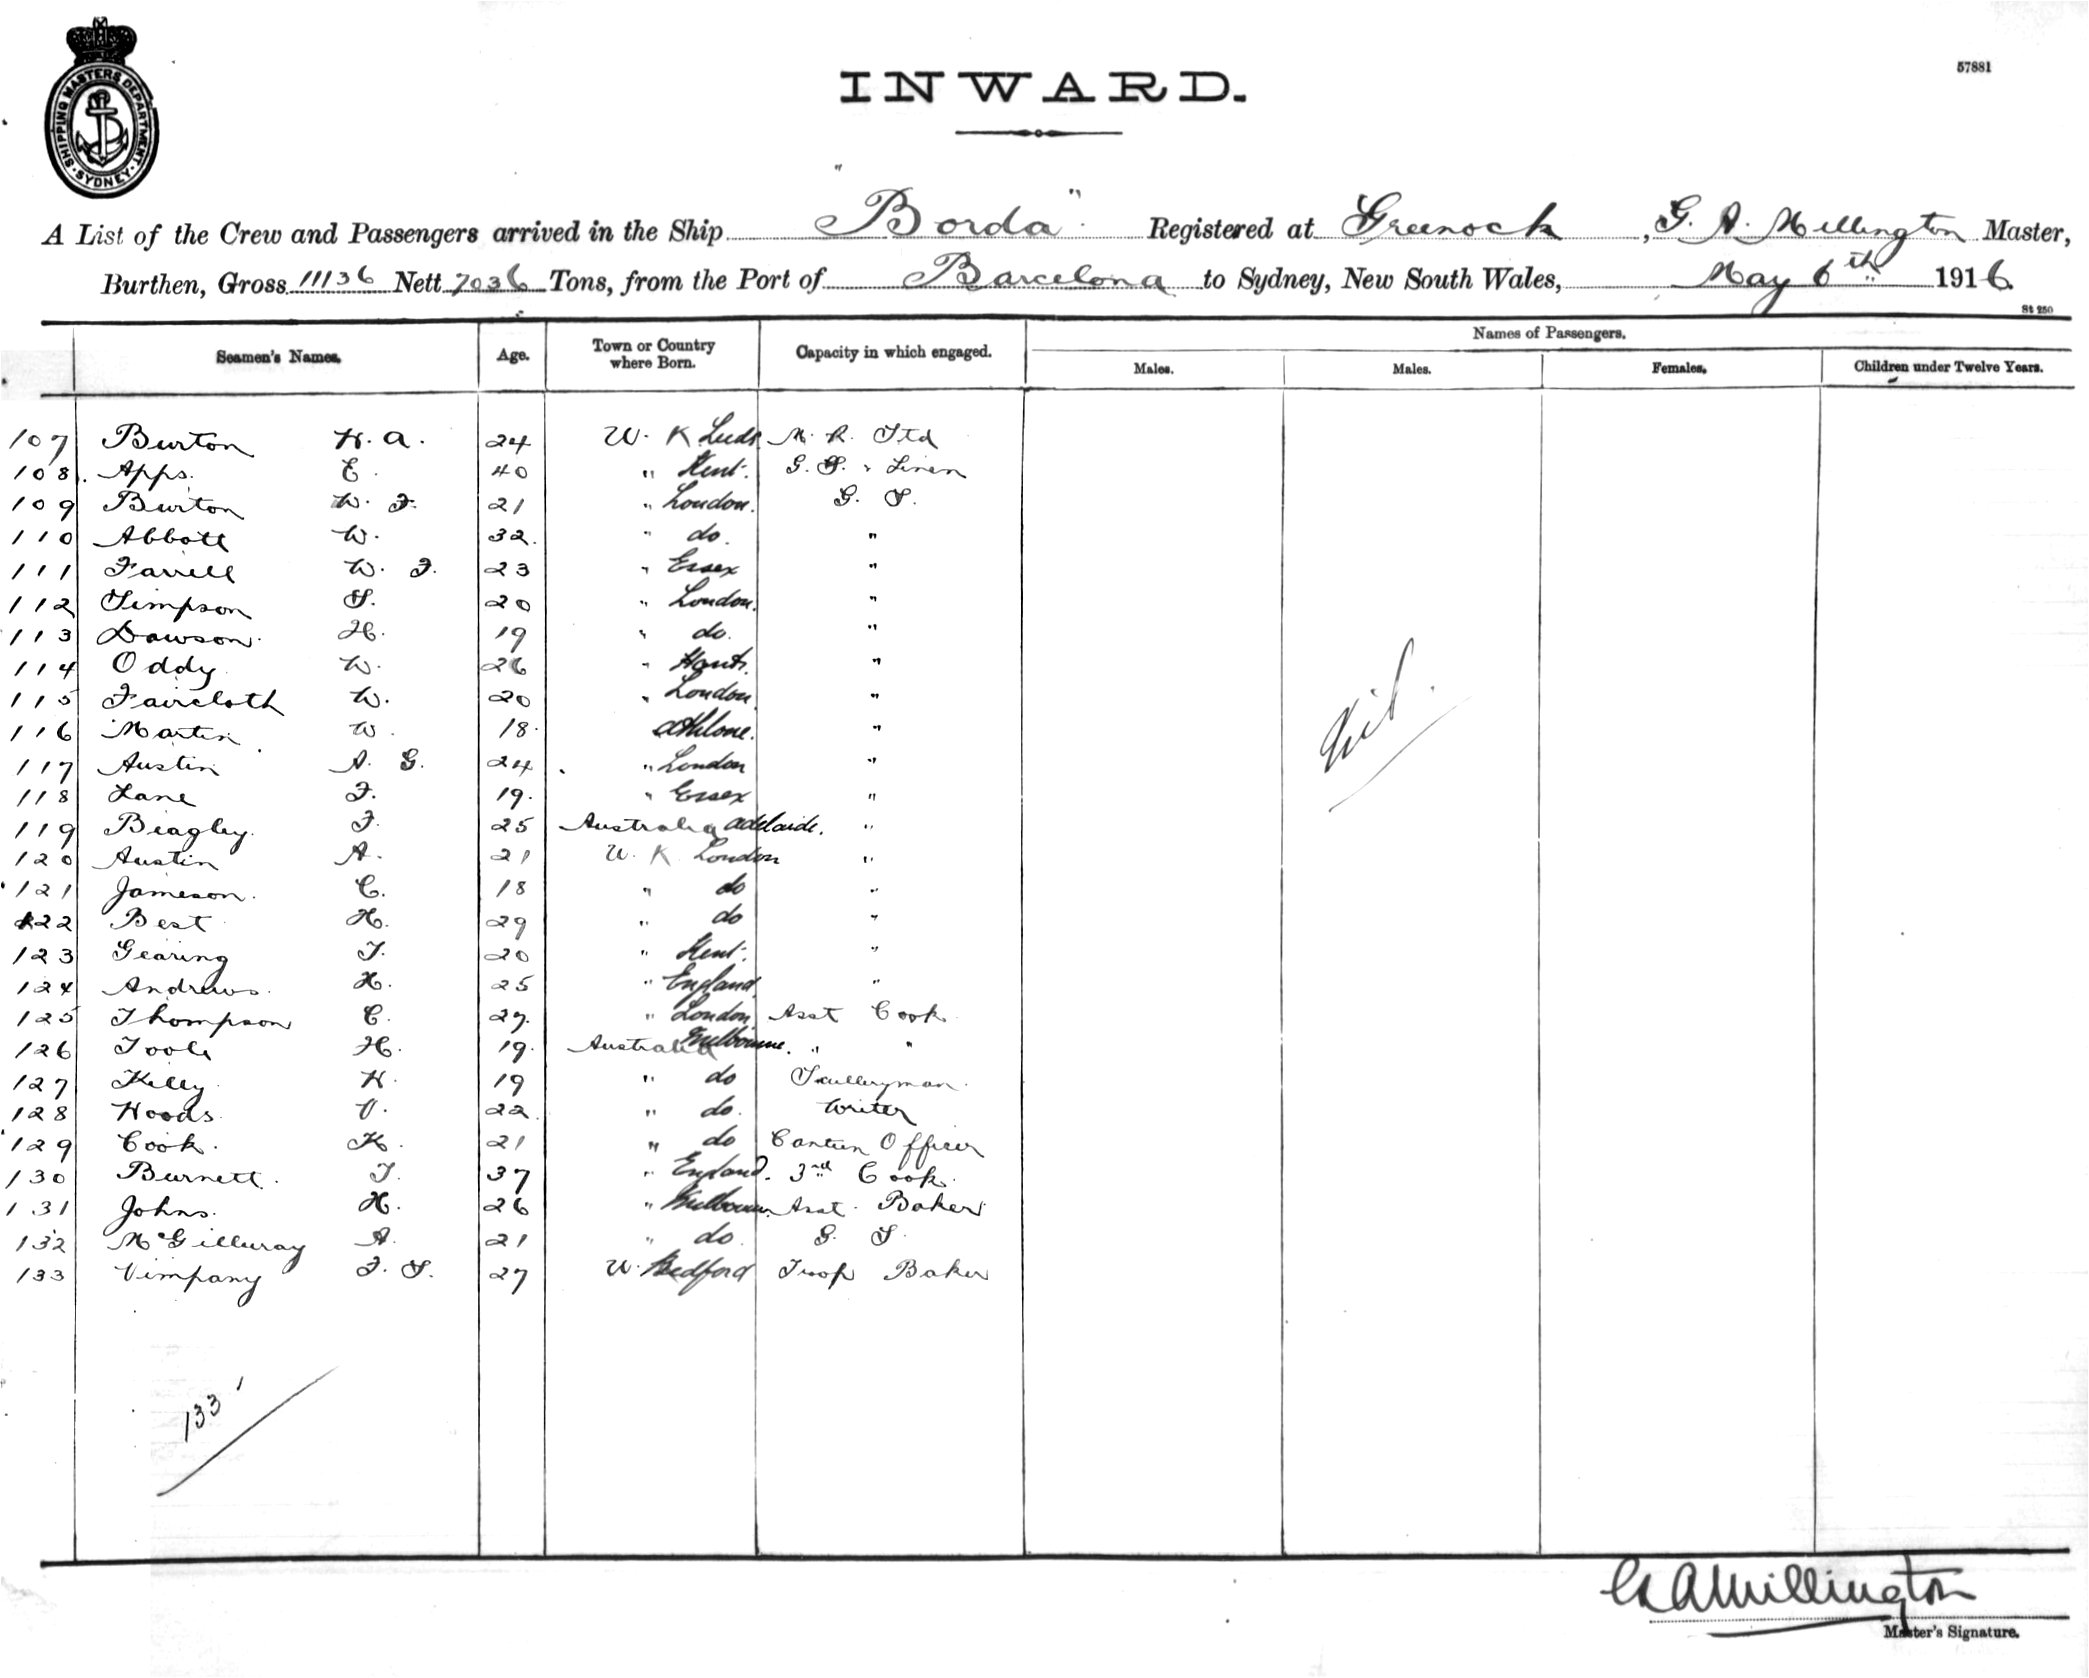 SHIPPING MASTERS DEPARTMENT · SYDNEY ·
57881
INWARD.
A List of the Crew and Passengers arrived in the Ship "Borda" Registered at Greenock, G. A. Millington Master,
Burthen, Gross 11136 Nett 7036 Tons, from the Port of Barcelona to Sydney, New South Wales, May 6th 1916.
St 250
Seamen's Names. Age. Town or Country where Born. Capacity in which engaged. Names of Passengers.
Males. Males. Females. Children under Twelve Years.
107 Burton H. A. 24 U. K Leeds M. R. Std
108. Apps. E. 40 " Kent. G. S. & Linen
109 Burton W. F. 21 " London. G. S.
110 Abbott W. 32. " do. "
111 Farrell W. F. 23 " Essex "
112 Simpson S. 20 " London. "
113 Dawson. H. 19 " do. "
114 Oddy W. 26 " Hants. "
115 Faircloth W. 20 " London "
116 Martin W. 18. Athlone. "
117 Austin A. G. 24 " London "
118 Lane F. 19. " Essex "
119 Beagley. F. 25 Australia Adelaide. "
120 Austin A. 21 U. K London "
121 Jameson. C. 18 " do "
122 Best H. 29 " do "
123 Gearing T. 20 " Kent. "
124 Andrews. H. 25 " England "
125 Thompson C. 27. " London Asst Cook
126 Toole H. 19. Australia Melbourne. " "
127 Kelly K. 19 " do Sculleryman
128 Woods. V. 22. " do. Writer
129 Cook. K. 21 " do Canteen Officer
130 Burnett. T. 37 " England. 3rd Cook.
131 Johns. H. 26 " Melbourne Asst. Baker
132 McGilluray A. 21 " do. G. S.
133 Vimpany F. S. 27 U. Bedford Troop Baker
Nil.
133
G A Millington
Master's Signature.